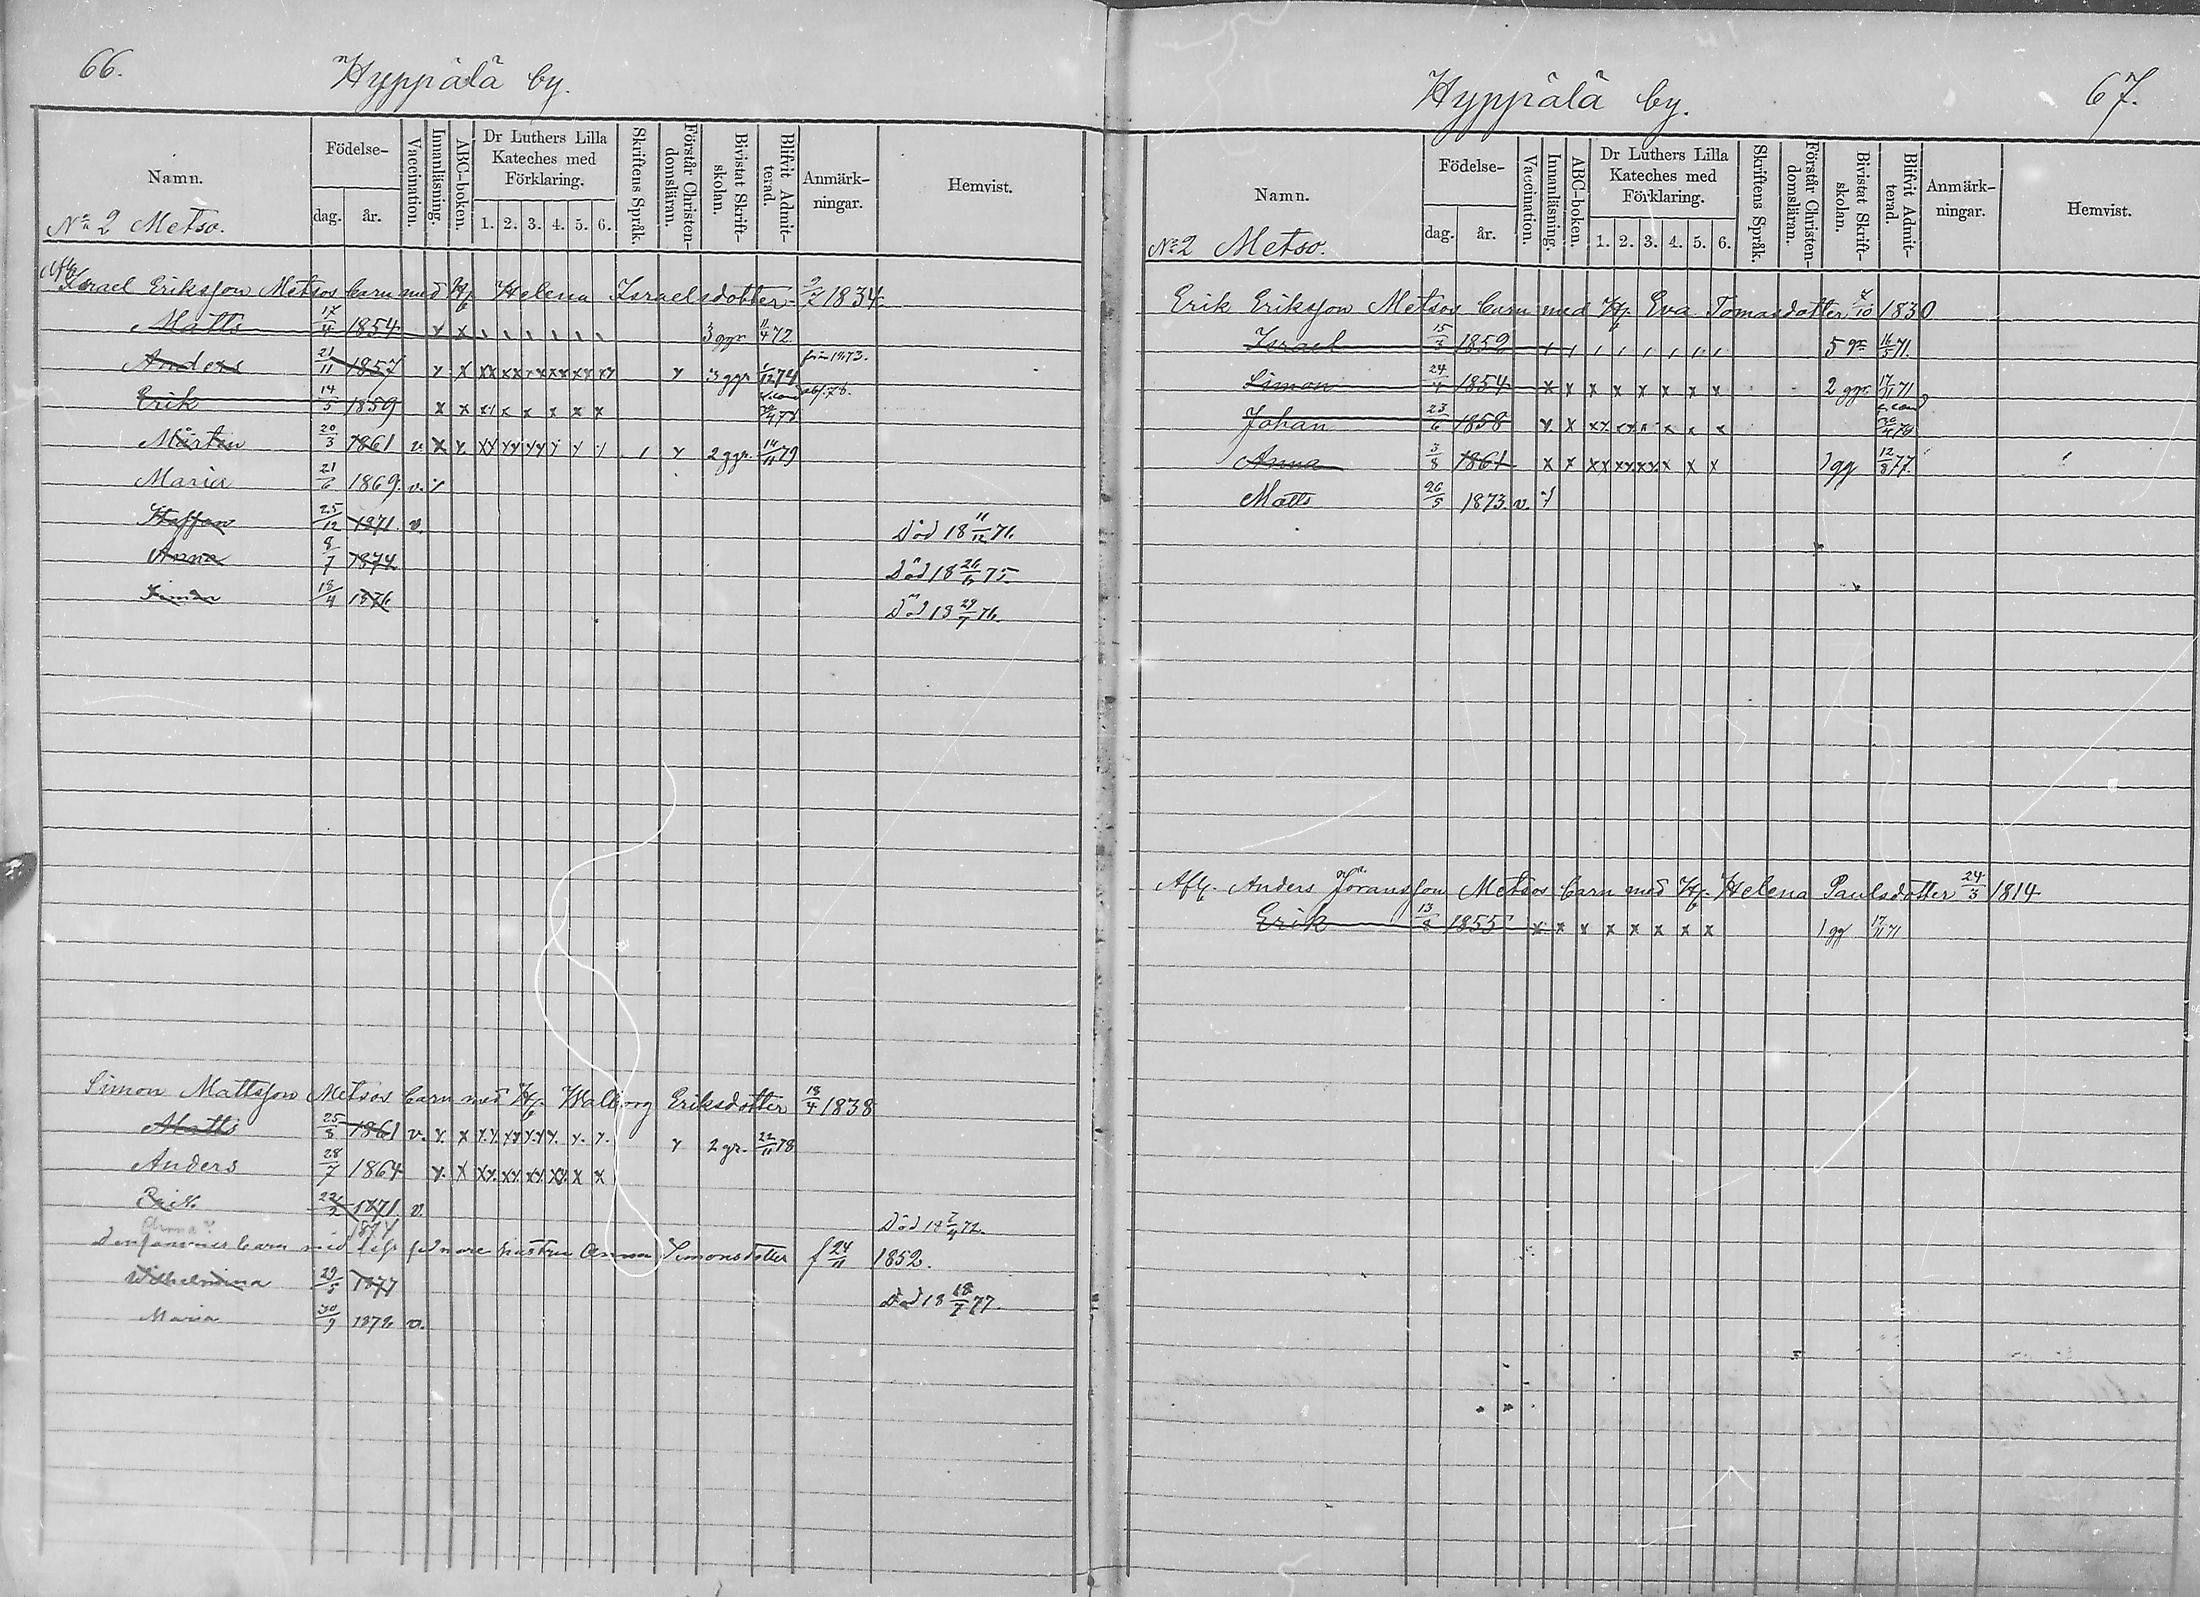 66.
Hyppälä by.
Namn.
Födelse-
dag.
år.
Vaccination.
Innanläsning.
ABC-boken.
Dr Luthers Lilla
Kateches med
Förklaring.
1. 2. 3. 4. 5. 6.
Skriftens Språk.
Förstår Christen-
domsläran.
Bivistat Skrift-
skolan.
Blifvit Admit-
terad.
Anmärk-
ningar.
Hemvist.
No 2 Metso.
Israel Eriksson Metsos barn med H. Helena Israelsdotter 1834
Matts 17/4 1854 x x 3 ggr 11/4 72.
Anders 21/11 1857 x x xx xx xx xx xx xx x 3 ggr 74
Erik 14/5 1859 x x xx x x x x x
Mårten 20/3 1861 v. x x xx xx xx x x x 2 ggr. 14/11 79
Maria 21/6 1869. v.
Staffan 25/12 1871. v. Död 18 11/12 71.
Anna 8/7 1874 Död 18 75.
Simon 18/4 1876 Död 18 29/7 76.
Simon Mattsson Metsos barn med H. Walborg Eriksdotter 18/4 1838
Matts 25/8 1861 v. x x x 2 gr. 22/11 78
Anders 28/7 1864 x x xx xx xx xx x x
Erik 1871. v. Död 72.
Anna 1874
Densammes barn med sednare hustru Anna Simonsdotter f 24/11 1852.
Wilhelmina 29/5 1877 Död 18 18/7 77.
Maria 30/9 1878 v.
Hyppälä by.
67.
Namn.
Födelse-
dag.
år.
Vaccination.
Innanläsning.
ABC-boken.
Dr Luthers Lilla
Kateches med
Förklaring.
1. 2. 3. 4. 5. 6.
Skriftens Språk.
Förstår Christen-
domsläran.
Bivistat Skrift-
skolan.
Blifvit Admit-
terad.
Anmärk-
ningar.
Hemvist.
No 2 Metso.
Erik Eriksson Metsos barn med H. Eva Tomasdotter 7/10 1830
Israel 15/3 1852 5 gr 16/5 71.
Simon 24/4 1854 x x x x x x x x 2 ggr. 17/11 71
Johan 23/6 1858 x x xx xx x x x x
Anna 3/8 1861 x x xx xx xx x x x 1 gg 12/8 77.
Matts 26/5 1873. v.
Afl. Anders Joransson Metsos barn med H. Helena Paulsdotter 24/3 1814
Erik 13/8 1855 x x x x x x x x 1 gg 17/11 71